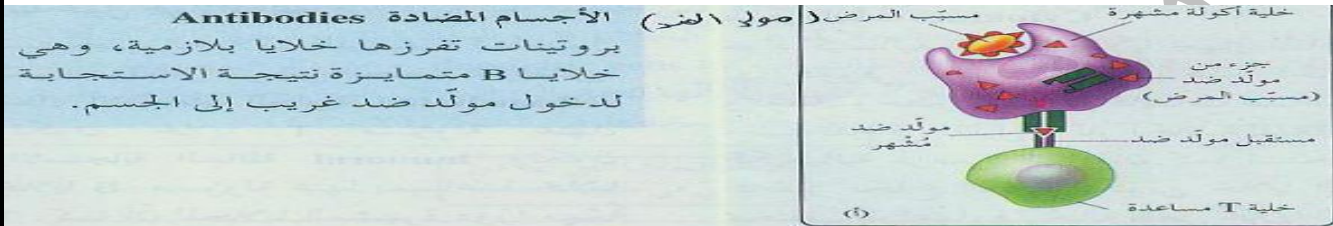 الأجسام المضادة Antibodies
بروتينات تفرزها خلايا بلازمية، وهي
خلايا B متمايزة نتيجة الاستجابة
لدخول مولّد ضد غريب إلى الجسم.
خلية أكولة مشهرة
مسبّب المرض (مولد الضد)
جزء من
مولّد ضد
(مسبّب المرض)
مولّد ضد
مُشْهر
مستقبل مولّد ضد
خلية T مساعدة
(أ)